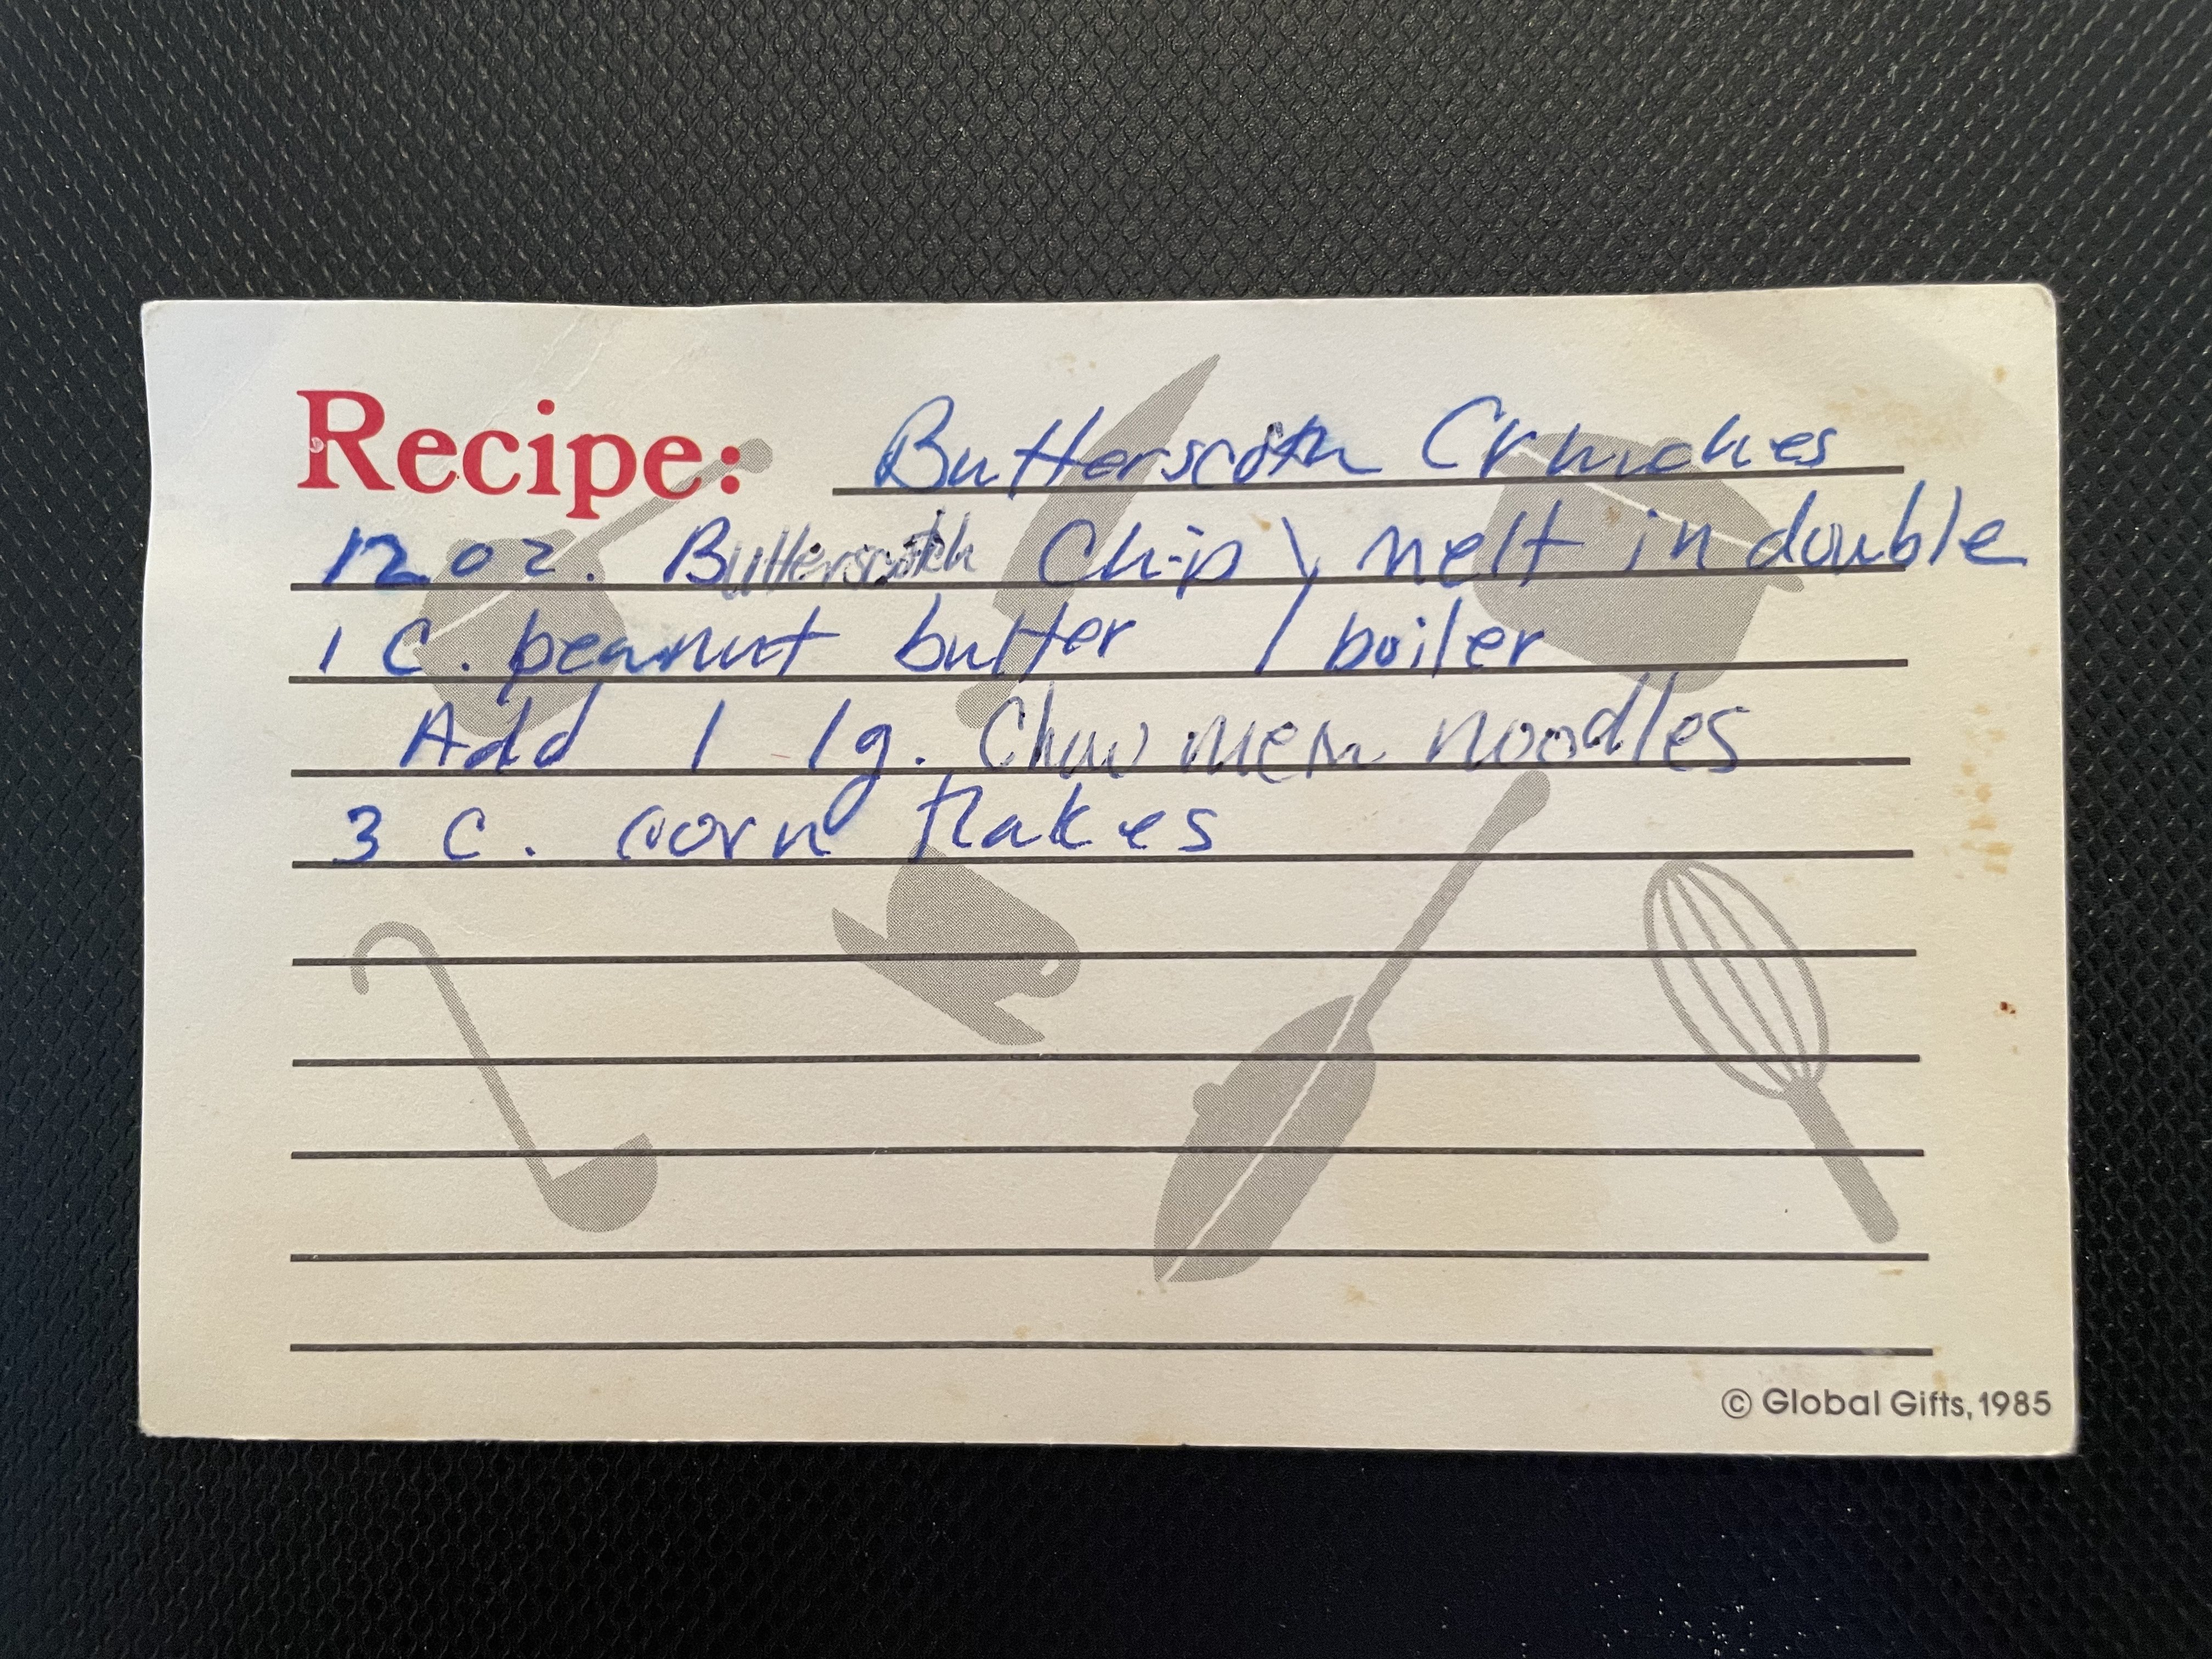 Recipe: Butterscotch Crunches
12 oz. Butterscotch Chip \ melt in double
1 C. peanut butter / boiler
Add 1 lg. Chow mein noodles
3 C. corn flakes
© Global Gifts, 1985